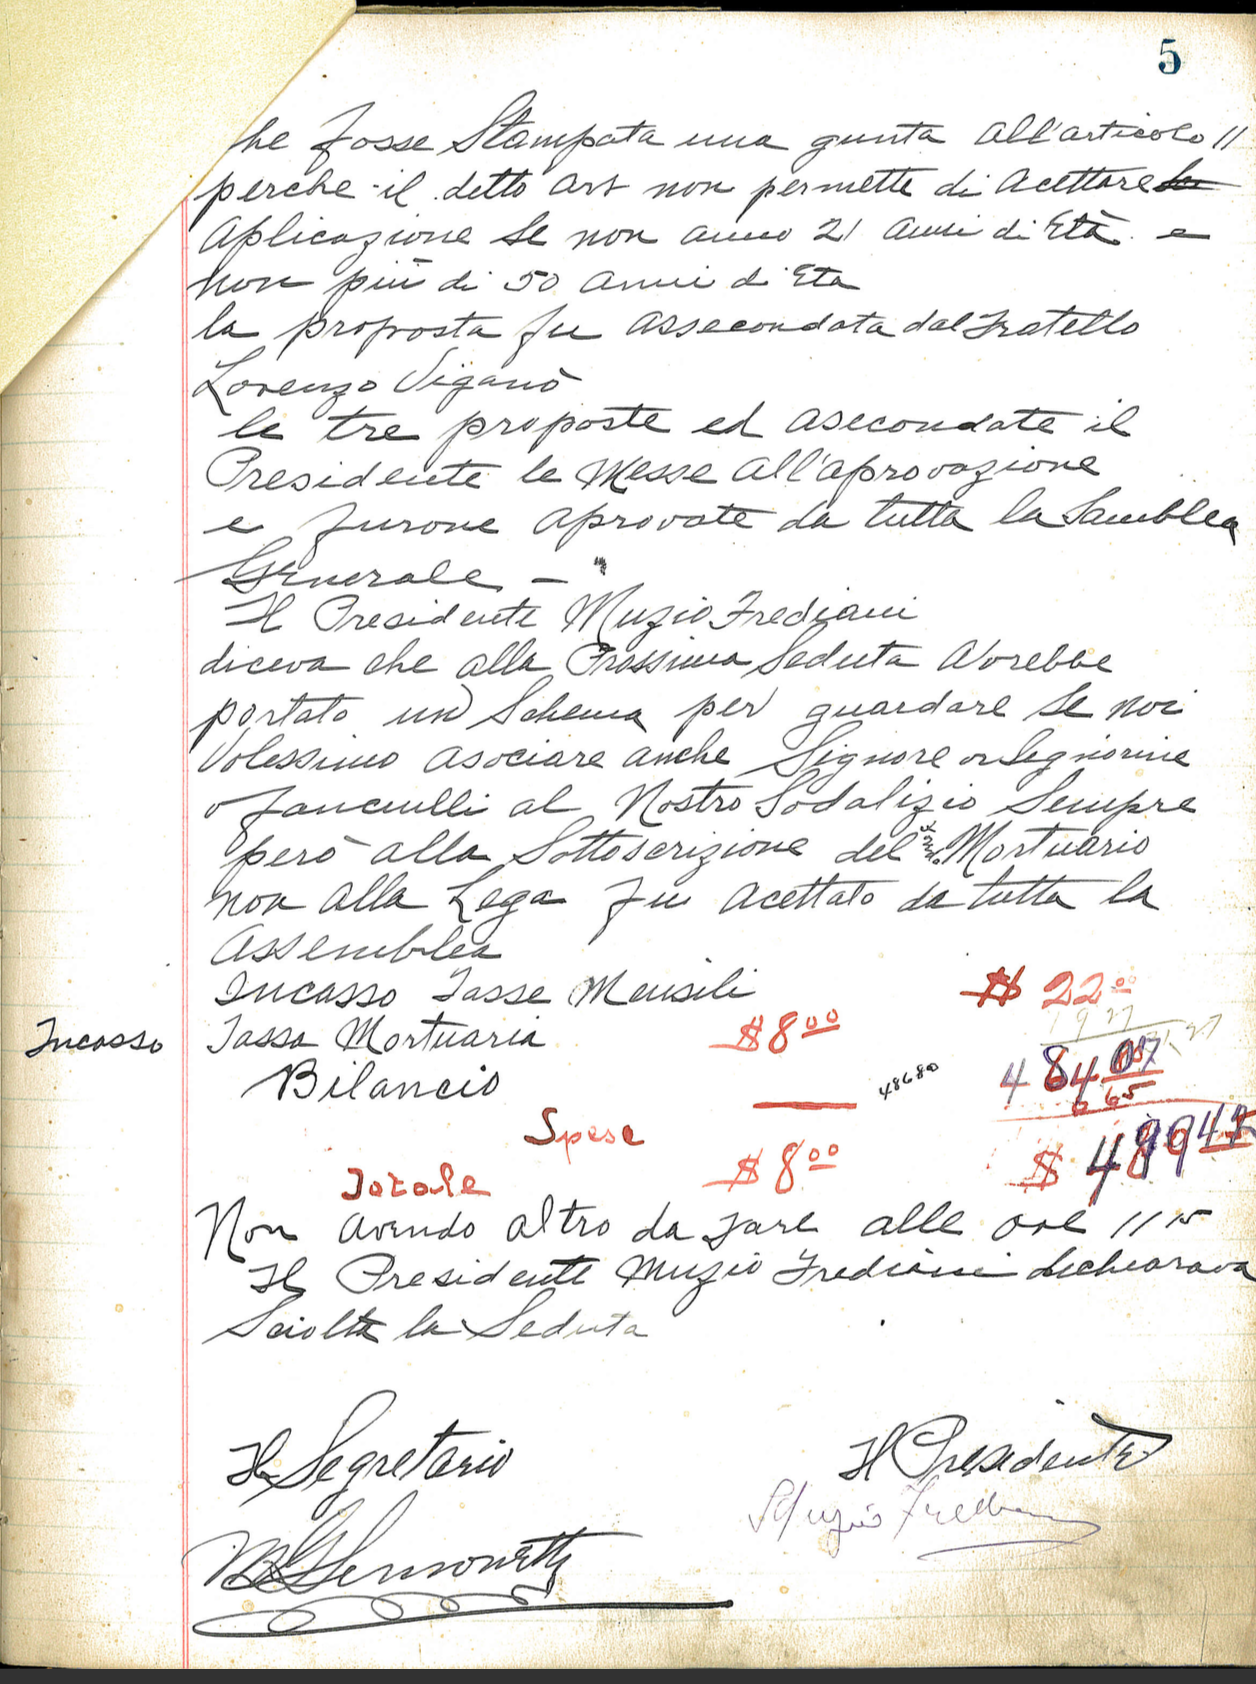 5
he fosse Stampata una giunta all'articolo 11
perche il detto Art non permette di Acettare
Aplicazione Se non anno 21 anni di Età e
non più di 50 anni di Eta
la proposta fu assecondata dal Fratello
Lorenzo Viganò
le tre proposte ed asecondate il
Presidente le Messe all'aprovazione
e furone aprovate da tutta la Samblea
Generale –
Il Presidente Muzio Frediani
diceva che alla Prossima Seduta Avrebbe
portato un Schema per guardare Se noi
Volessimo asociare anche Signore o Segniorine
o fanciulli al Nostro Sodalizio Sempre
però alla Sottoscrizione del Fondo Mortuario
non alla Lega fu acettato da tutta la
Assemblea
Incasso Tasse Mensili $ 22 00
Incasso Tassa Mortuaria $8 00
Bilancio 48680 484
Spese 6 65
Totale $ 8 00 $ 489 47
Non avendo altro da fare alle ore 11 15
Il Presidente Muzio Frediani dichiarava
Sciolta la Seduta
Il Segretario Il Presidente
Muzio Frediani